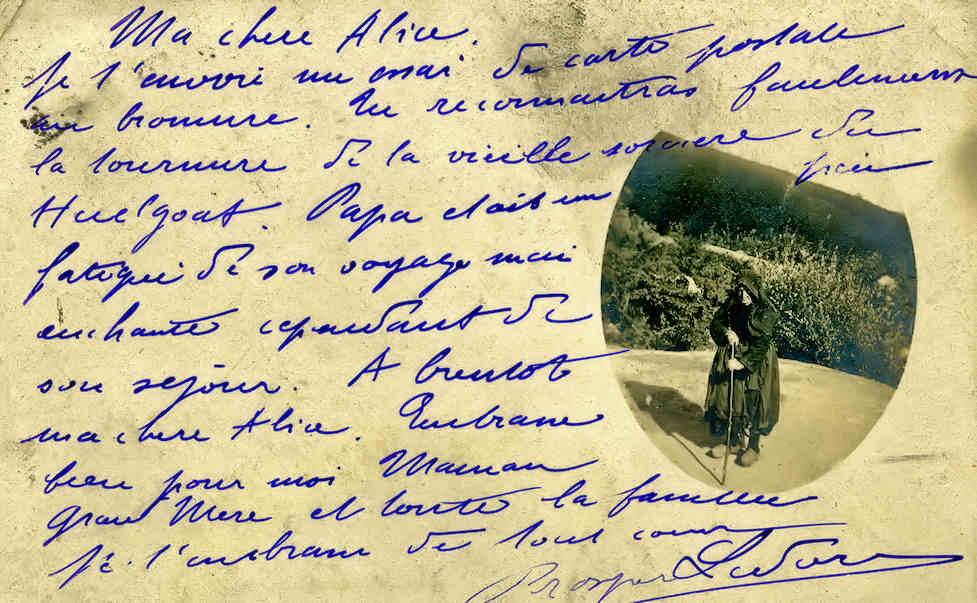 Ma chere Alice.
Je t'envoie un essai de carte postale
au bromure. Tu reconnaitras facilement
la tournure de la vieille sorciere du
Huelgoat. Papa etait un peu
fatigué de son voyage mais
enchanté cependant de
son séjour. A bientot
ma chere Alice. Embrasse
bien pour moi Maman
Grand Mere et toute la famille
Je t'embrasse de tout coeur
Prosper